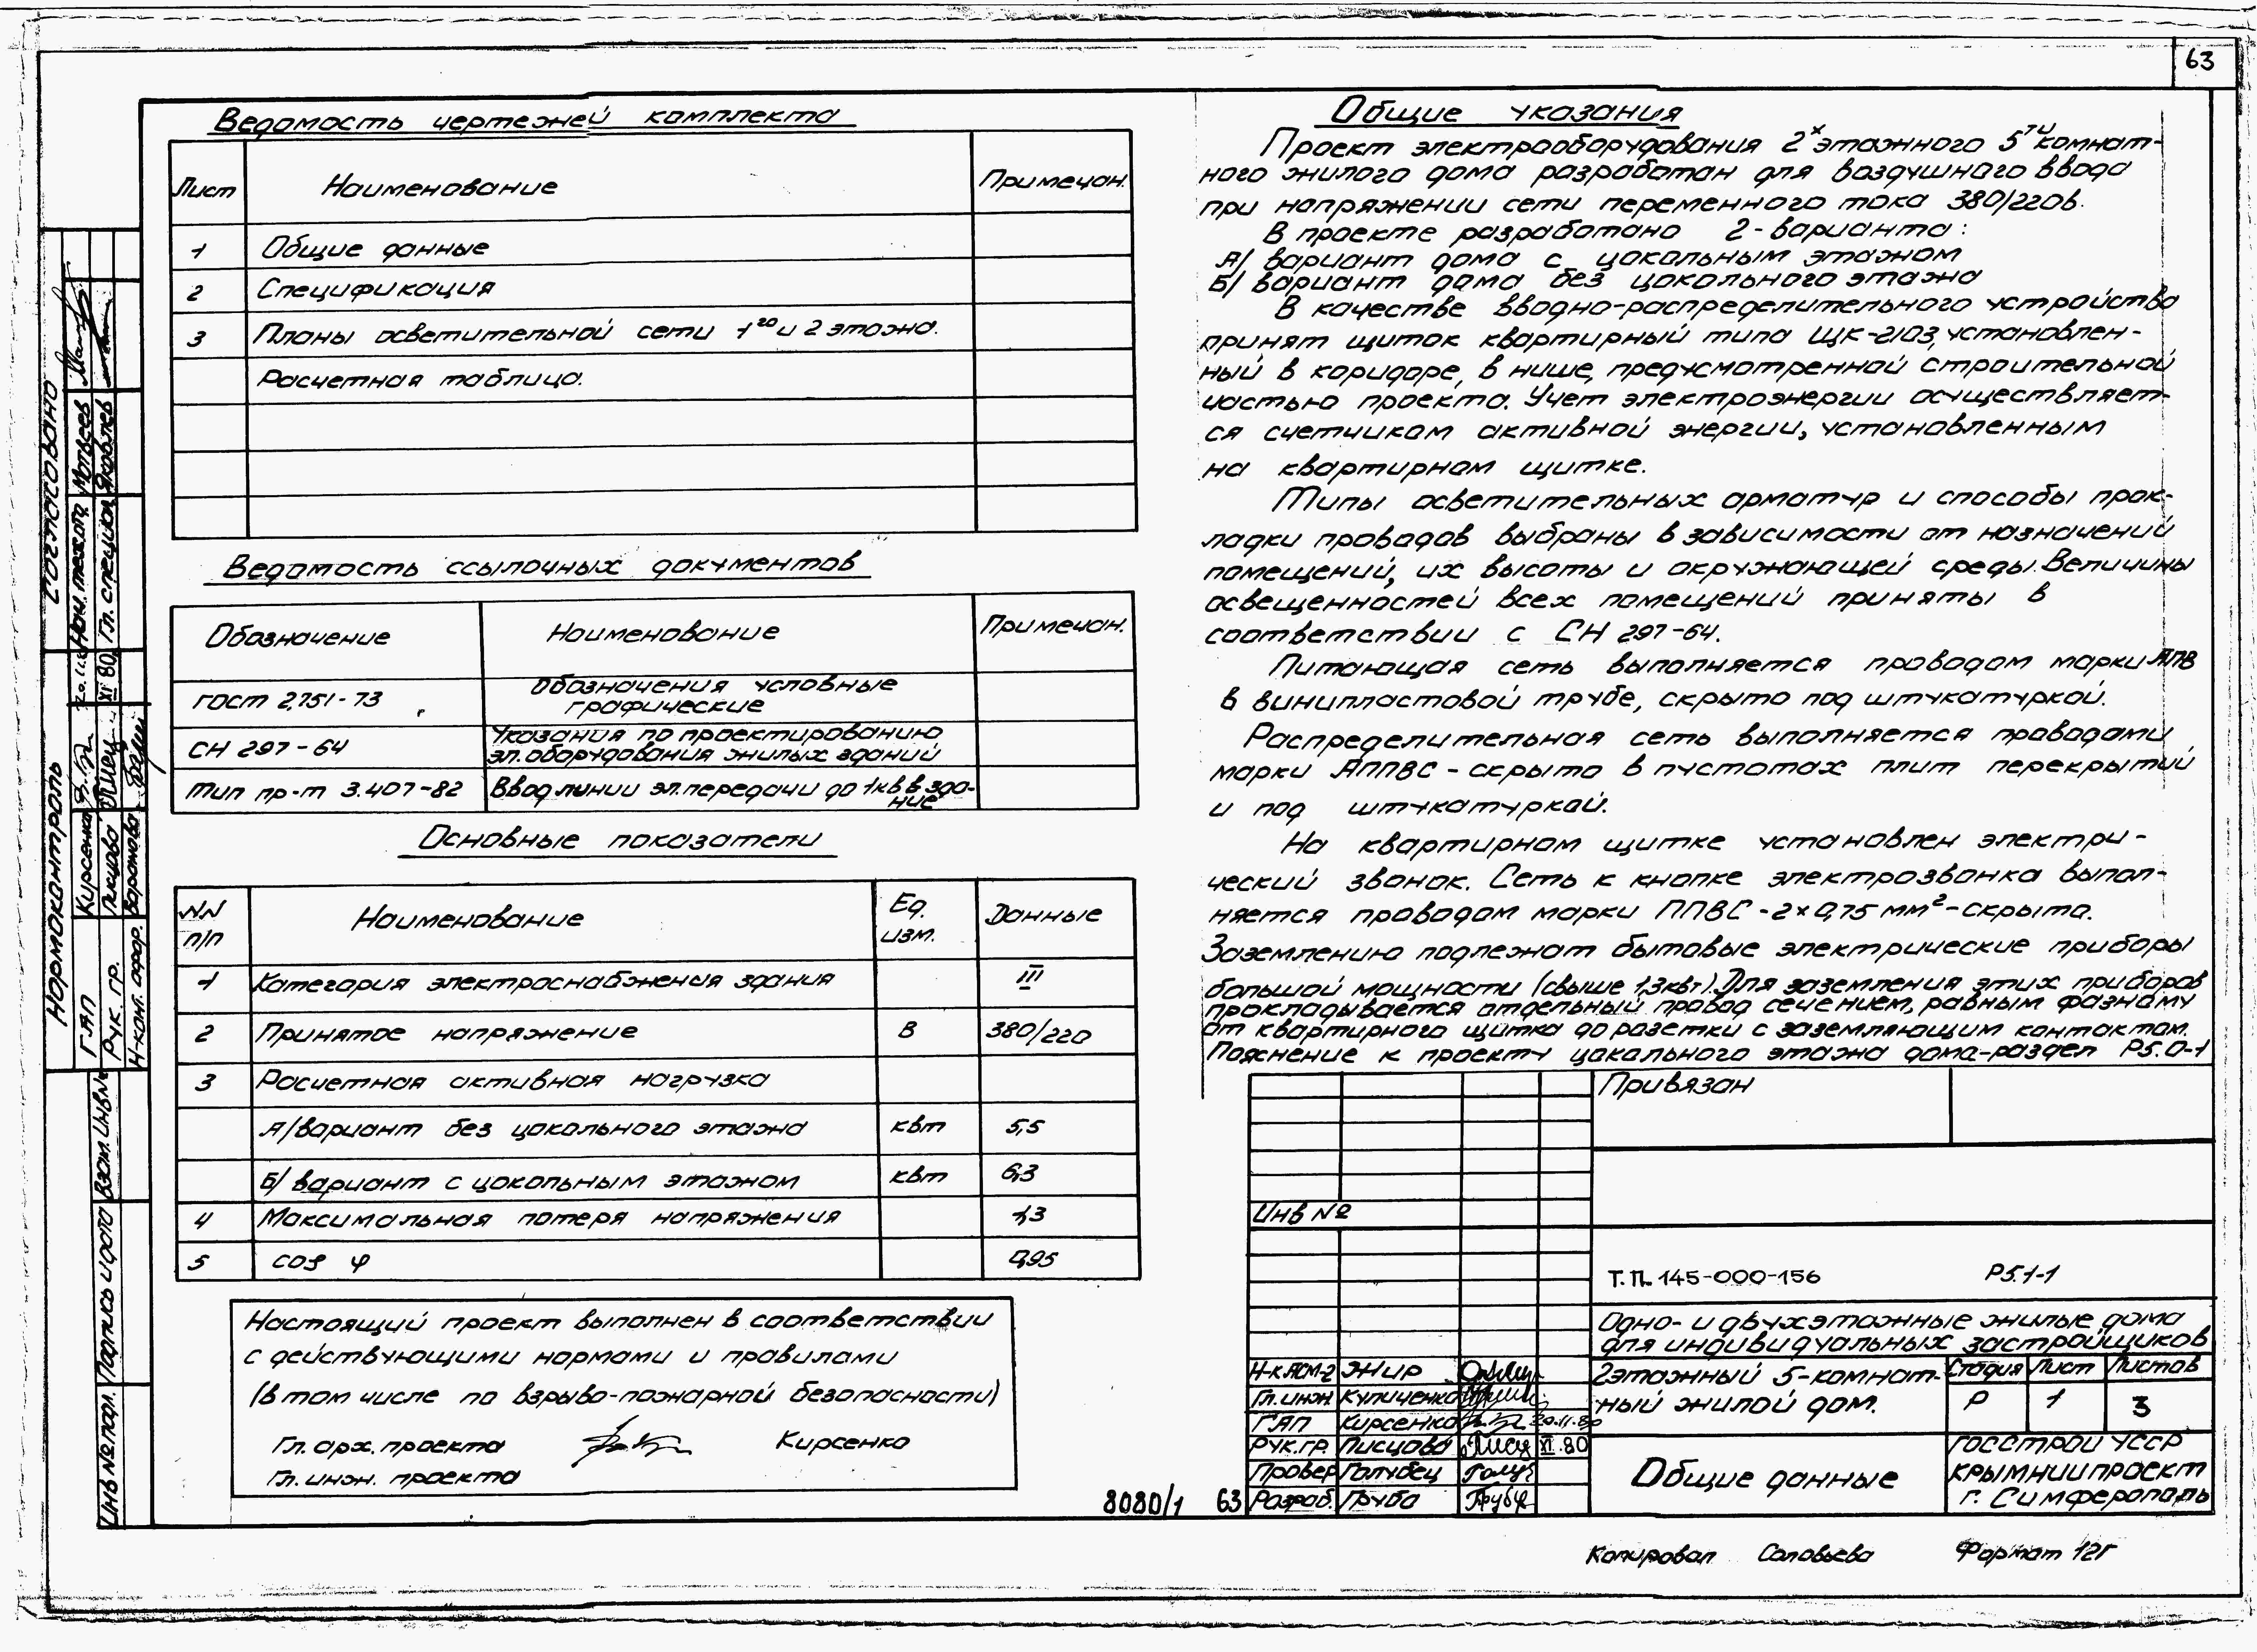 63
Ведомость чертежей комплекта
Лист Наименование Примечан.
1 Общие данные
2 Спецификация
3 Планы осветительной сети 1го и 2 этажа.
Расчетная таблица.
Ведомость ссылочных документов
Обозначение Наименование Примечан.
ГОСТ 2.751-73 Обозначения условные
графические
СН 297-64 Указания по проектированию
эл.оборудования жилых зданий
Тип пр-т 3.407-82 Ввод линии эл.передачи до 1кв в зда-
ние
Основные показатели
NN
п/п Наименование Ед.
изм. Данные
1 Категория электроснабжения здания III
2 Принятое напряжение В 380/220
3 Расчетная активная нагрузка
А/вариант без цокольного этажа квт 5,5
Б/ вариант с цокольным этажом квт 6,3
4 Максимальная потеря напряжения 1,3
5 cos φ 0,95
Настоящий проект выполнен в соответствии
с действующими нормами и правилами
(в том числе по взрыво-пожарной безопасности)
Гл. арх. проекта Кирсенко
Гл. инж. проекта
Общие указания
Проект электрооборудования 2х этажного 5ти комнат-
ного жилого дома разработан для воздушного ввода
при напряжении сети переменного тока 380/220в.
В проекте разработано 2-варианта:
А/ вариант дома с цокольным этажом
Б/ вариант дома без цокольного этажа
В качестве вводно-распределительного устройства
принят щиток квартирный типа ЩК-2103, установлен-
ный в коридоре, в нише, предусмотренной строительной
частью проекта. Учет электроэнергии осуществляет-
ся счетчиком активной энергии, установленным
на квартирном щитке.
Типы осветительных арматур и способы прок-
ладки проводов выбраны в зависимости от назначений
помещений, их высоты и окружающей среды. Величины
освещенностей всех помещений приняты в
соответствии с СН 297-64.
Питающая сеть выполняется проводом марки АПВ
в винипластовой трубе, скрыто под штукатуркой.
Распределительная сеть выполняется проводами
марки АППВС - скрыто в пустотах плит перекрытий
и под штукатуркой.
На квартирном щитке установлен электри-
ческий звонок. Сеть к кнопке электрозвонка выпол-
няется проводом марки ППВС-2×0,75 мм²-скрыто.
Заземлению подлежат бытовые электрические приборы
большой мощности (свыше 1,3квт). Для заземления этих приборов
прокладывается отдельный провод сечением, равным фазному
от квартирного щитка до розетки с заземляющим контактом.
Пояснение к проекту цокольного этажа дома-раздел Р5.0-1
Привязан
Инв №
Т.П. 145-000-156 Р5.1-1
Одно- и двухэтажные жилые дома
для индивидуальных застройщиков
2этажный 5-комнат-
ный жилой дом.
Стадия Лист Листов
Р 1 3
Общие данные
Госстрой УССР
Крымниипроект
г. Симферополь
Н-к АСМ-2 Жир
Гл. инж. Куличенко
ГАП Кирсенко 20.11.80
Рук. гр. Писцова XI.80
Провер Голубец
Разраб. Груба
8080/1 63
Копировал Соловьева Формат 12Г
Согласовано
Нач. техотд. Матвеев
Гл. специал. Яковлев
Нормоконтроль
ГАП Кирсенко 20.11.80
Рук. гр. Писцова XI 80
Н-конт. офор. Воронова
Взам. инв №
Подпись и дата
Инв № подл.